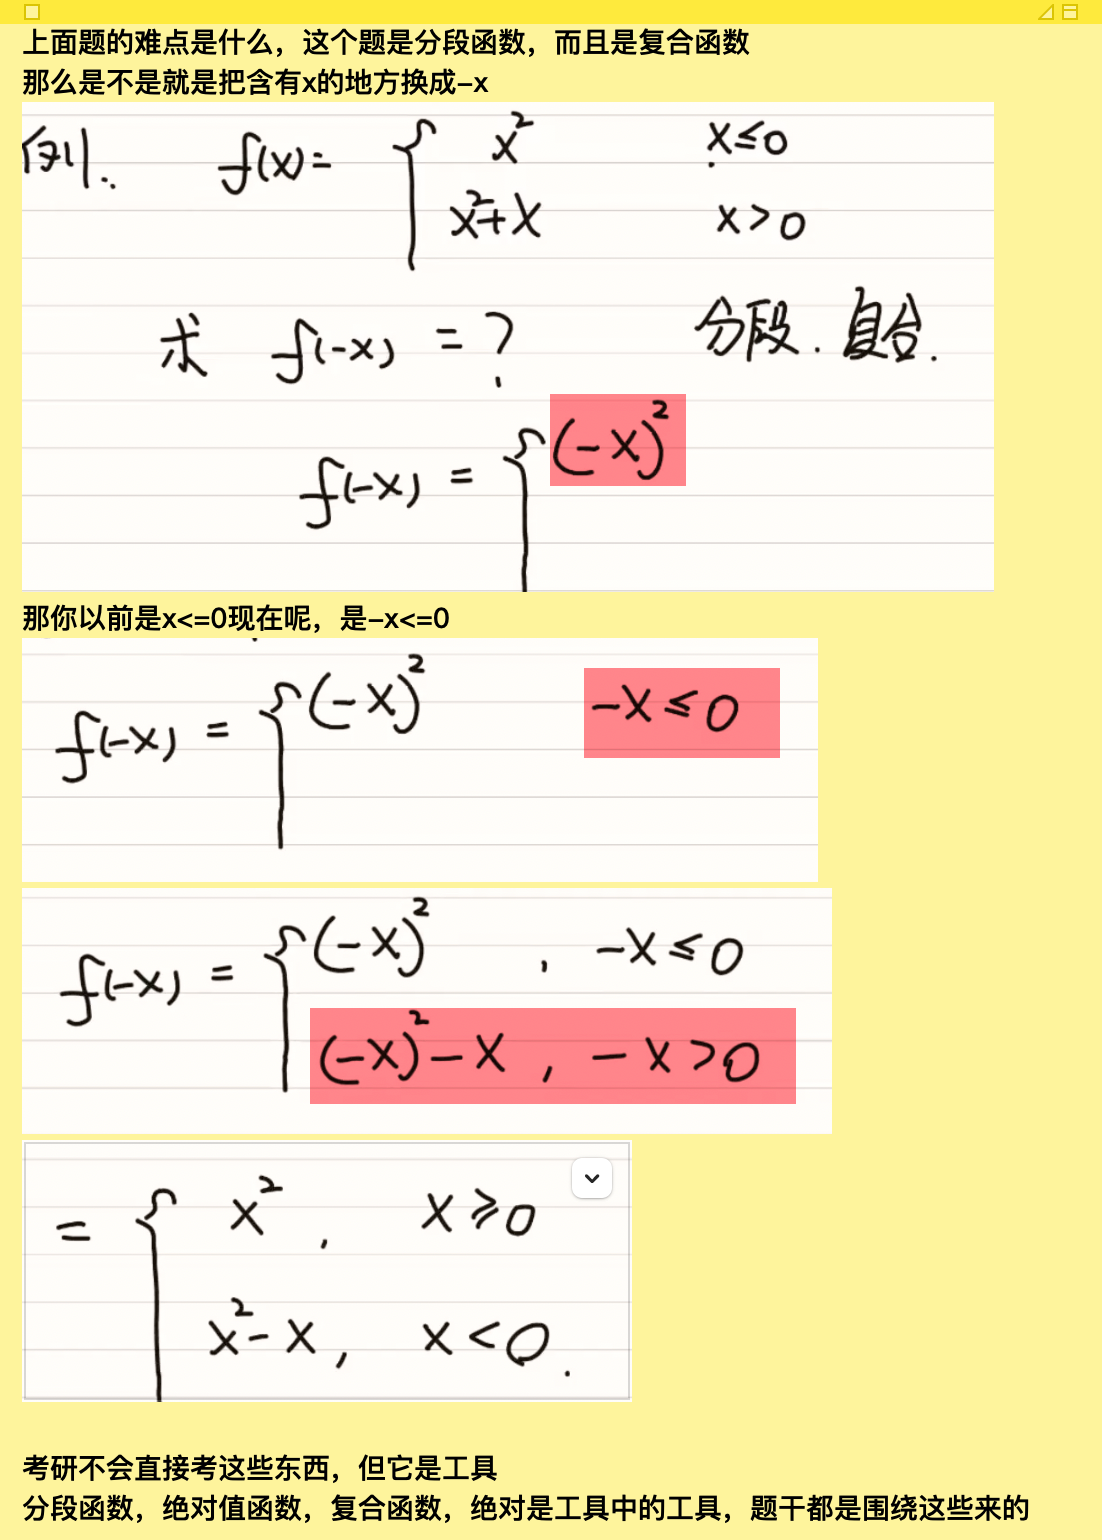 上面题的难点是什么，这个题是分段函数，而且是复合函数
那么是不是就是把含有x的地方换成-x
例. f(x)= { x² x≤0
x²+x x>0
求 f(-x) = ? 分段. 复合.
f(-x) = { (-x)²
那你以前是x<=0现在呢，是-x<=0
f(-x) = { (-x)² -x≤0
f(-x) = { (-x)² , -x≤0
(-x)²-x , -x>0
= { x² , x≥0
x²-x , x<0.
考研不会直接考这些东西，但它是工具
分段函数，绝对值函数，复合函数，绝对是工具中的工具，题干都是围绕这些来的